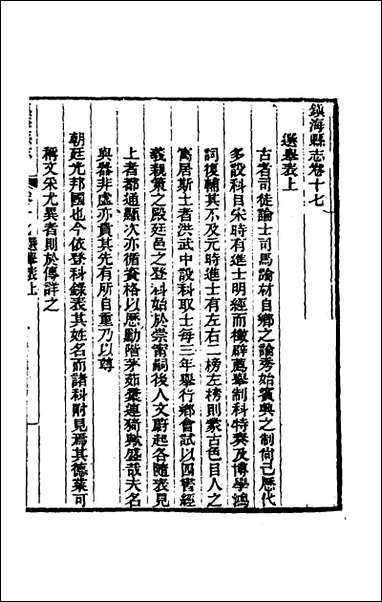 鎮海縣志卷十七
選舉表上
古者司徒論士司馬論材自鄉之論秀始賓興之制尙已歷代
多設科目宋時有進士明經而徵辟薦舉制科特奏及博學鴻
詞復輔其不及元時進士有左右二榜左榜則蒙古色目人之
寓居斯土者洪武中設科取士每三年舉行鄉會試以四書經
義親策之殿廷邑之登科始於崇甯嗣後人文蔚起各隨表見
上者都通顯次亦循資格以歷勳階茅茹彙連猗歟盛哉夫名
與器非虛亦貴其先有所自重乃以尊
朝廷光邦國也今依登科錄表其姓名而諸科附見焉其德業可
稱文采尤異者則於傳詳之
選舉表上